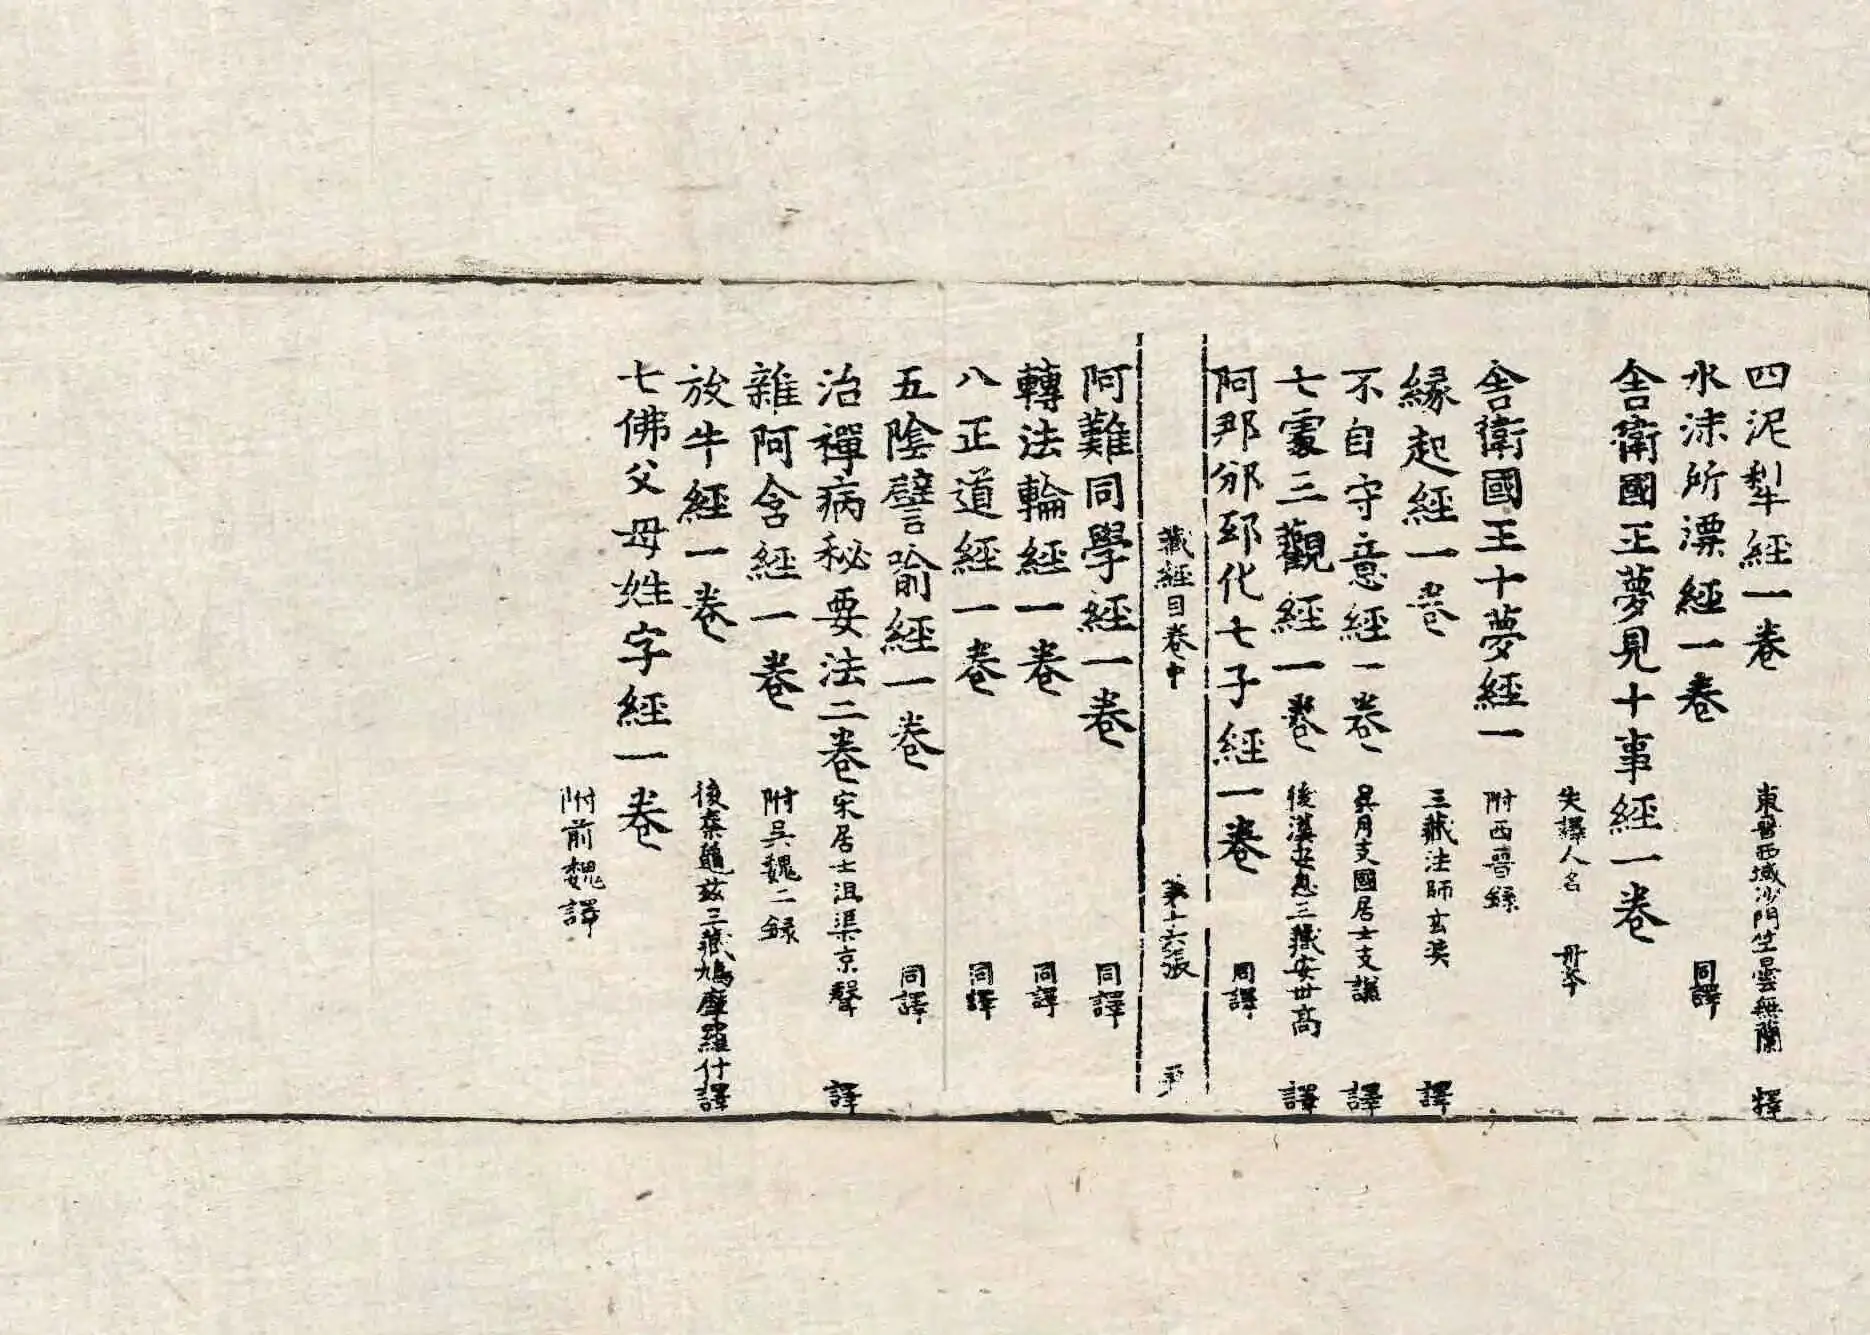 四泥犁經一卷 東晉西域沙門竺曇無蘭 譯
水沫所漂經一卷 同譯
舍衛國王夢見十事經一卷
失譯人名 丹本
舍衛國王十夢經一 附西晉錄
緣起經一卷 三藏法師玄奘 譯
不自守意經一卷 吳月支國居士支謙 譯
七處三觀經一卷 後漢安息三藏安世高 譯
阿那邠邸化七子經一卷 同譯
藏經目卷中 第十六張 尹
阿難同學經一卷 同譯
轉法輪經一卷 同譯
八正道經一卷 同譯
五陰譬喻經一卷 同譯
治禪病秘要法二卷 宋居士沮渠京聲 譯
雜阿含經一卷 附吳魏二錄
放牛經一卷 後秦龜茲三藏鳩摩羅什譯
七佛父母姓字經一卷
附前魏譯